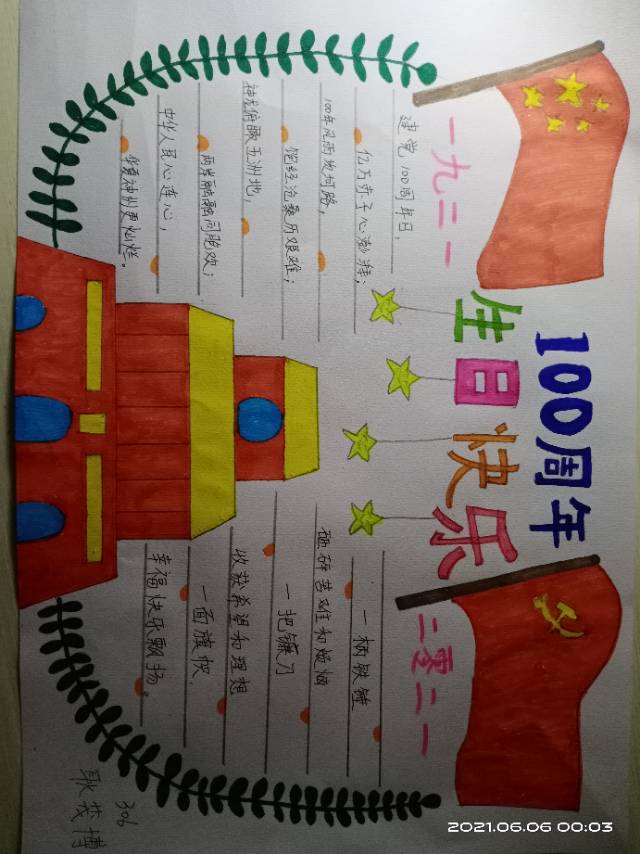 100周年
生日快乐
一九二一
建党100周年日，
亿万赤子心激拜；
100年风雨坎坷路，
饱经沧桑历艰难；
神龙俯瞰五洲地，
两岸融融同胞欢；
中华人民心连心，
华夏神州更灿烂。
二零二一
一柄铁锤
砸碎苦难和烦恼
一把镰刀
收获希望和理想
一面旗帜.
幸福快乐飘扬。
306
耿茂博
2021.06.06 00:03